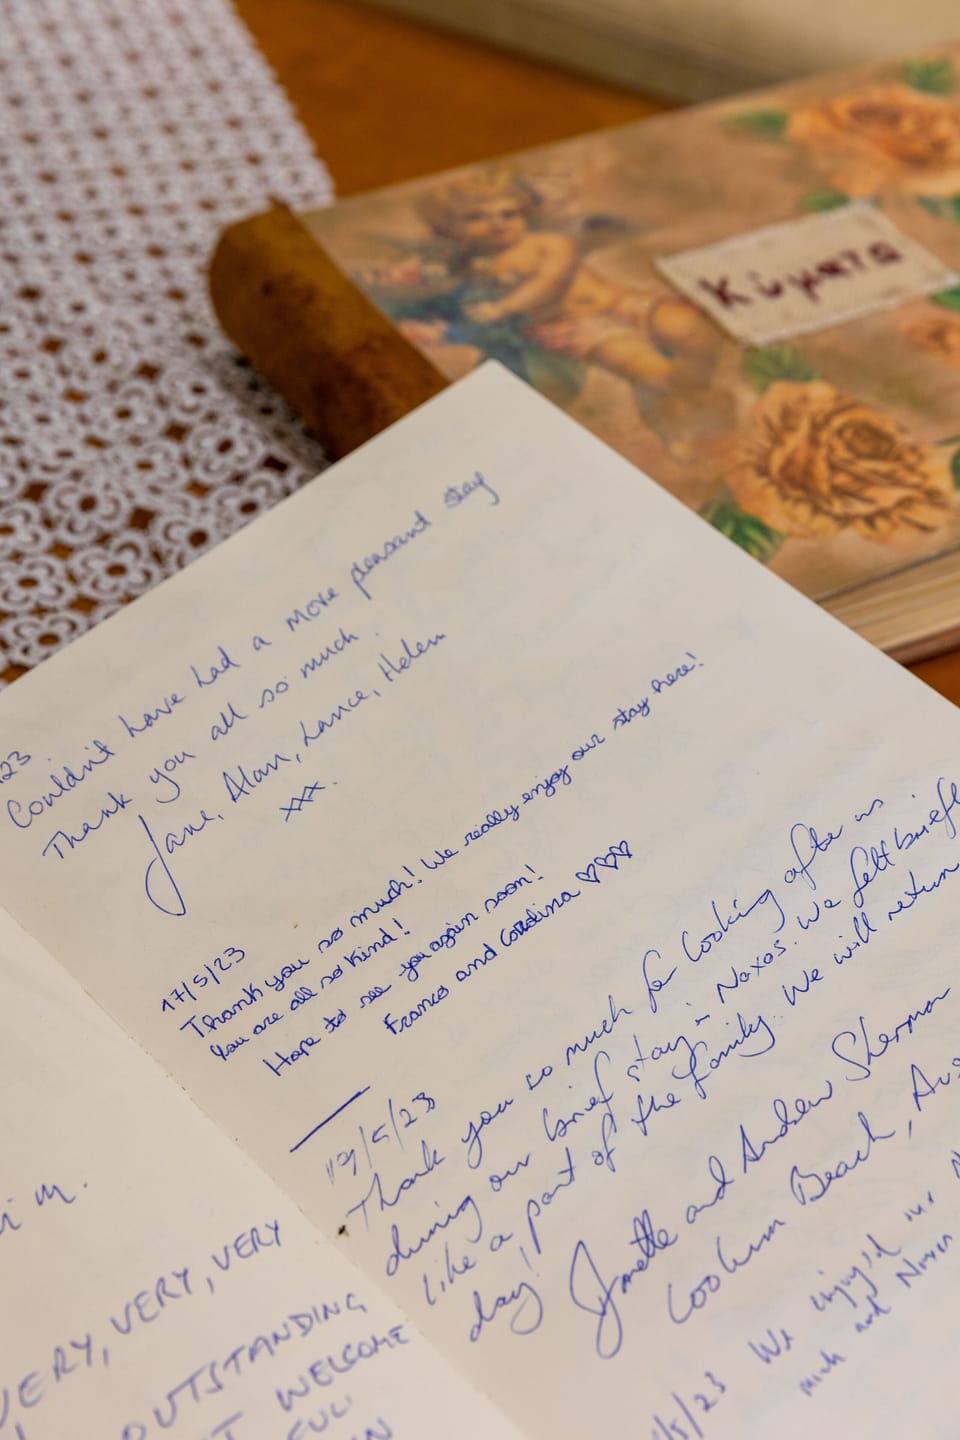 Κύματα
23
Couldn't have had a more pleasant stay
Thank you all so much.
Jane, Alan, Lance, Helen
xxx.
17/5/23
Thank you so much! We really enjoy our stay here!
You are all so kind!
Hope to see you again soon!
Franco and Carolina ♡♡♡
19/5/23
Thank you so much for looking after us
during our brief stay in Naxos. We felt
like a part of the family. We will return
day!
Jynette and Andrew Sherman
Coolum Beach,
/5/23 We enjoyed
much and
m.
VERY, VERY, VERY
OUTSTANDING
WELCOME